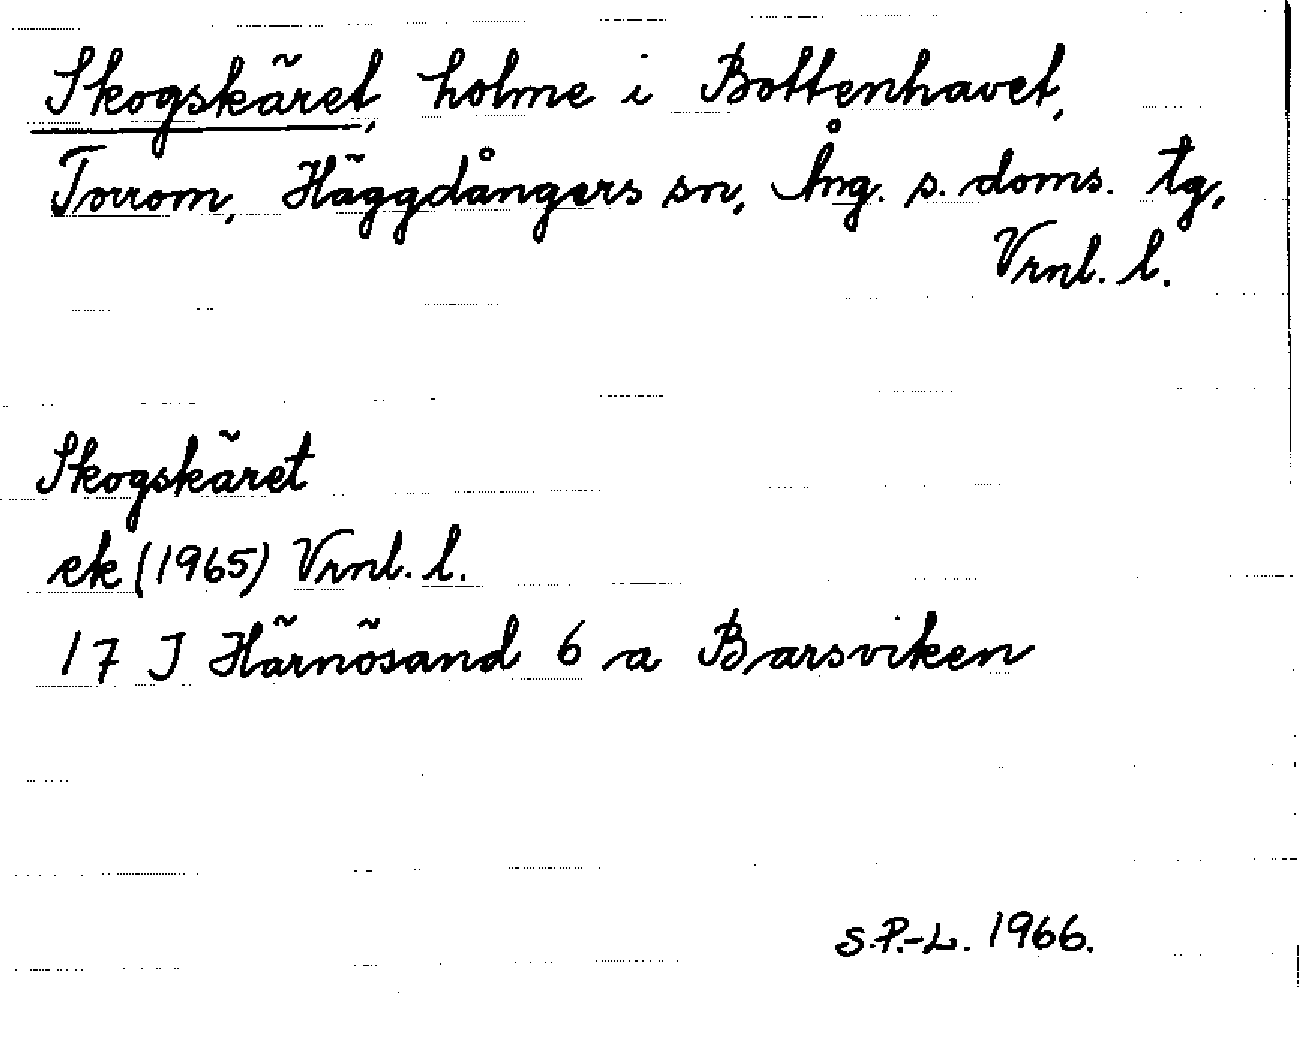 Skogskäret, holme i Bottenhavet,
Torrom, Häggdångers sn, Ång. s. doms. tg,
Vrnl. l.
Skogskäret
ek (1965) Vrnl. l.
17 J Härnösand 6 a Barsviken
S.P.-L. 1966.